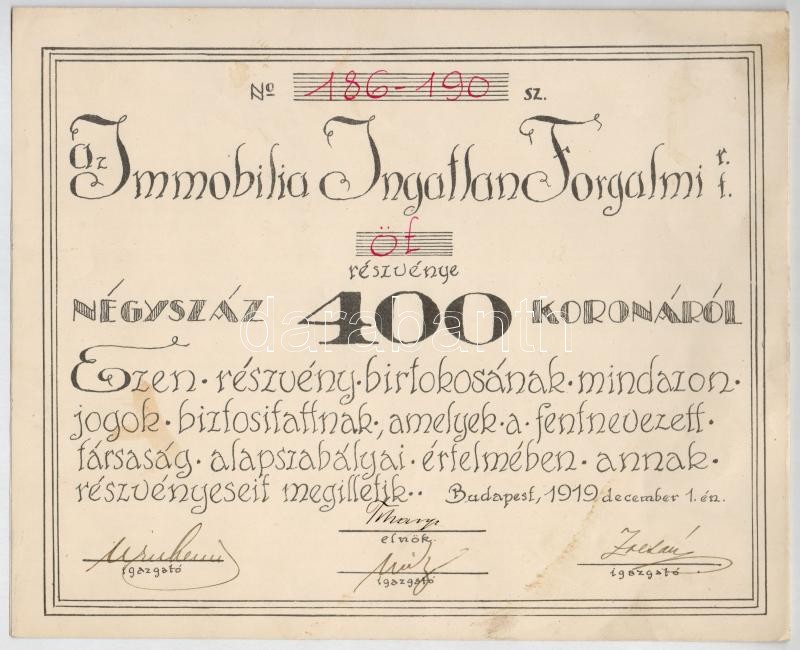 Nº 186-190 sz.
az Immobilia Ingatlan Forgalmi r. t.
öt
részvénye
NÉGYSZÁZ 400 KORONÁRÓL
darabanth
Ezen · részvény · birtokosának · mindazon ·
jogok · biztosittattnak, amelyek · a · fentnevezett ·
társaság · alapszabályai · értelmében · annak ·
részvényeseit megilletik · · Budapest, 1919 december 1. én.
elnök.
igazgató
igazgató
igazgató